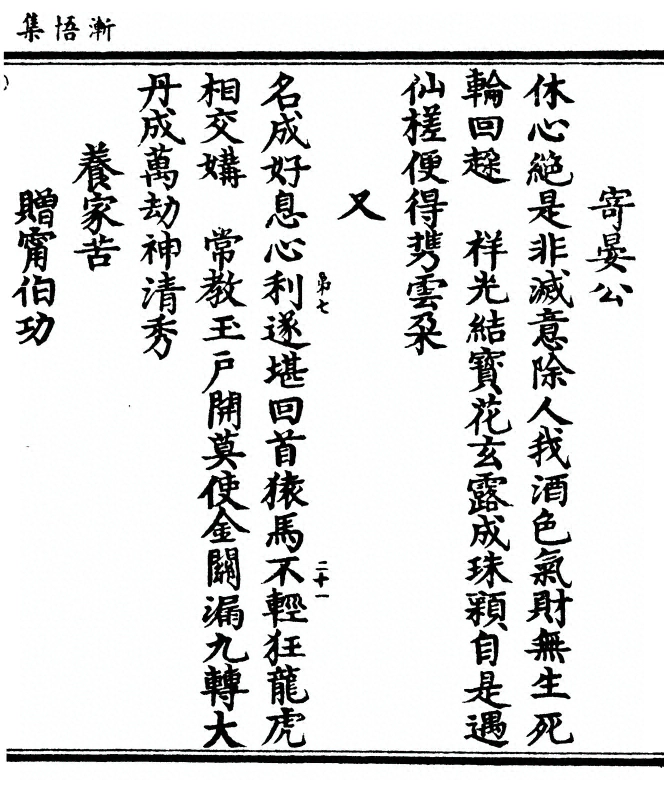 漸悟集
寄晏公
休心絕是非滅意除人我酒色氣財無生死
輪回趓　祥光結寶花玄露成珠顆自是遇
仙槎便得㩦雲朶
又
名成好息心利遂堪回首猿馬不輕狂龍虎
第七
二十一
相交媾　常教玉戶開莫使金關漏九轉大
丹成萬劫神清秀
養家苦
贈甯伯功